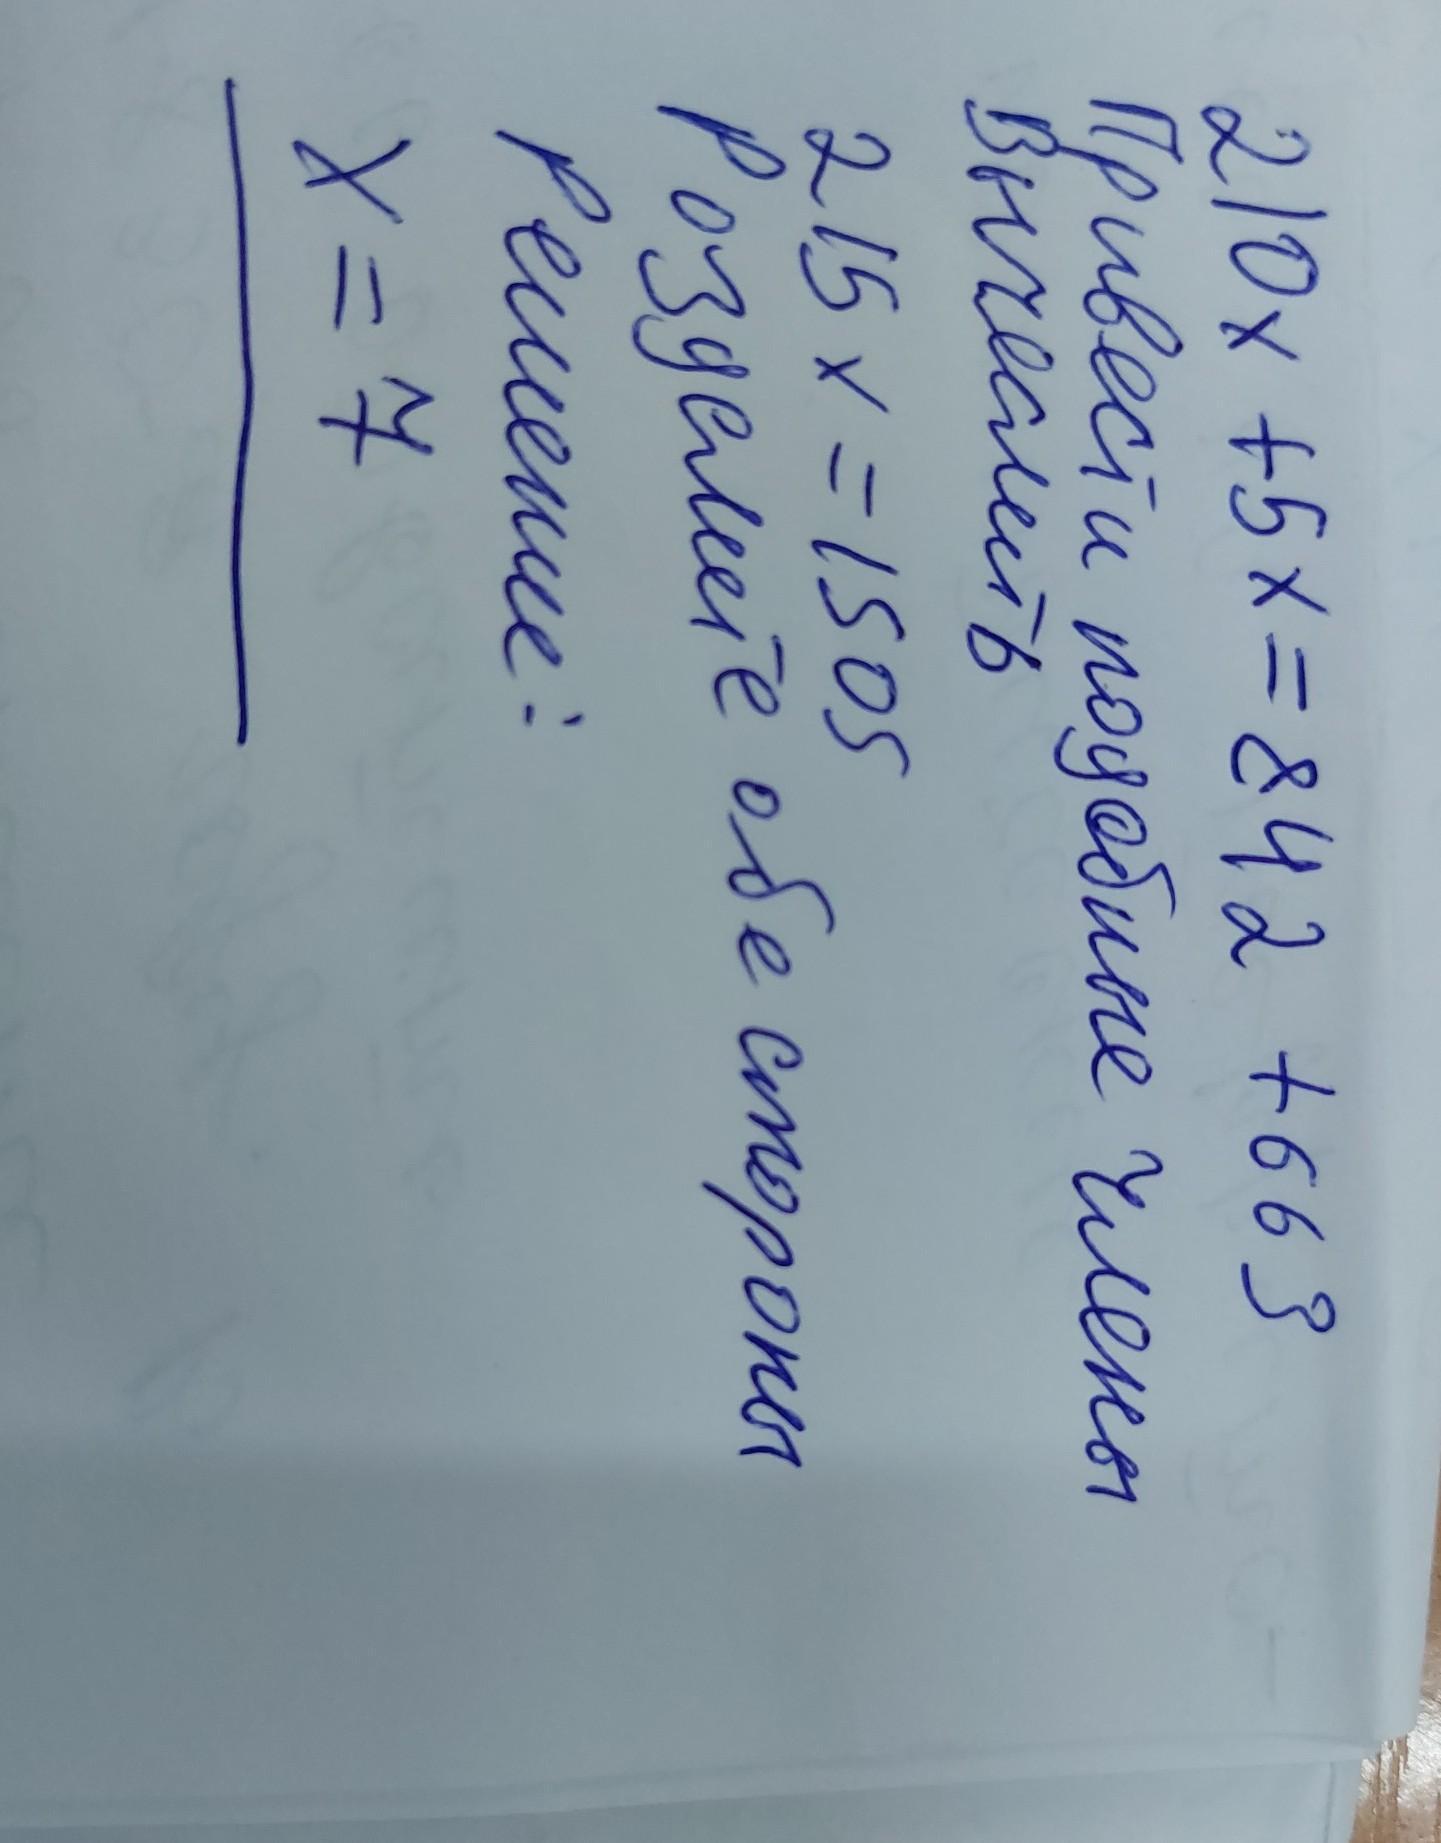 210x + 5x = 842 + 663
Привести подобные члены
Вычеслить
215x = 1505
Розделите обе стороны
Решение:
x = 7